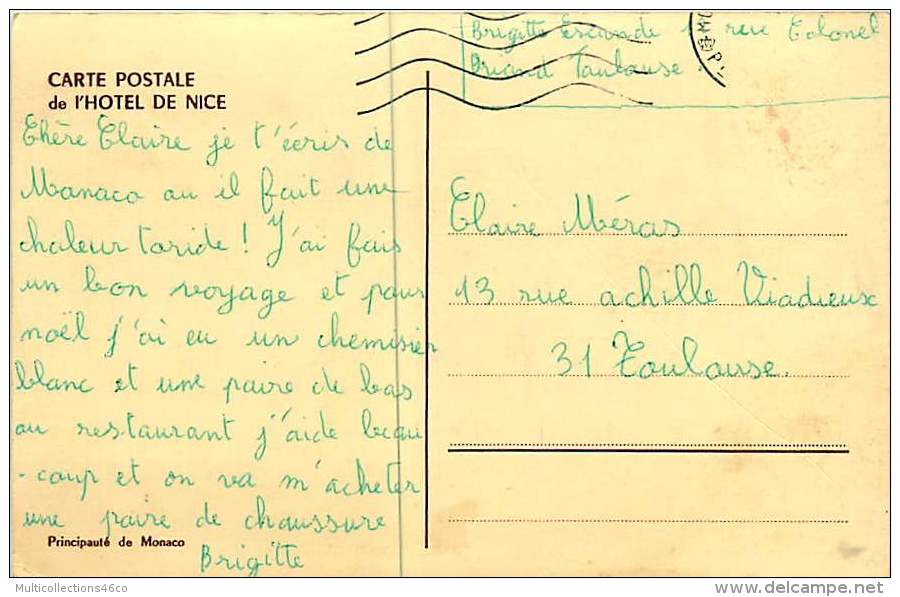 Brigitte Escande 1 rue Colonel
Briand Toulouse
CARTE POSTALE
de l'HOTEL DE NICE
Chère Claire je t'écris de
Monaco au il fait une
chaleur toride ! J'ai fais
un bon voyage et pour
noël j'ai eu un chemisier
blanc et une paire de bas
au restaurant j'aide beau
-coup et on va m'acheter
une paire de chaussure
Brigitte
Principauté de Monaco
Claire Méras
13 rue achille Viadieux
31 Toulouse.
Multicollections46co
www.delcampe.net